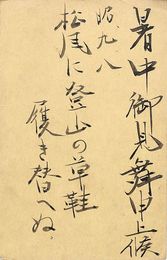 暑中御見舞申上候
昭、九、八
松尾に登山の草鞋
履き替へぬ、